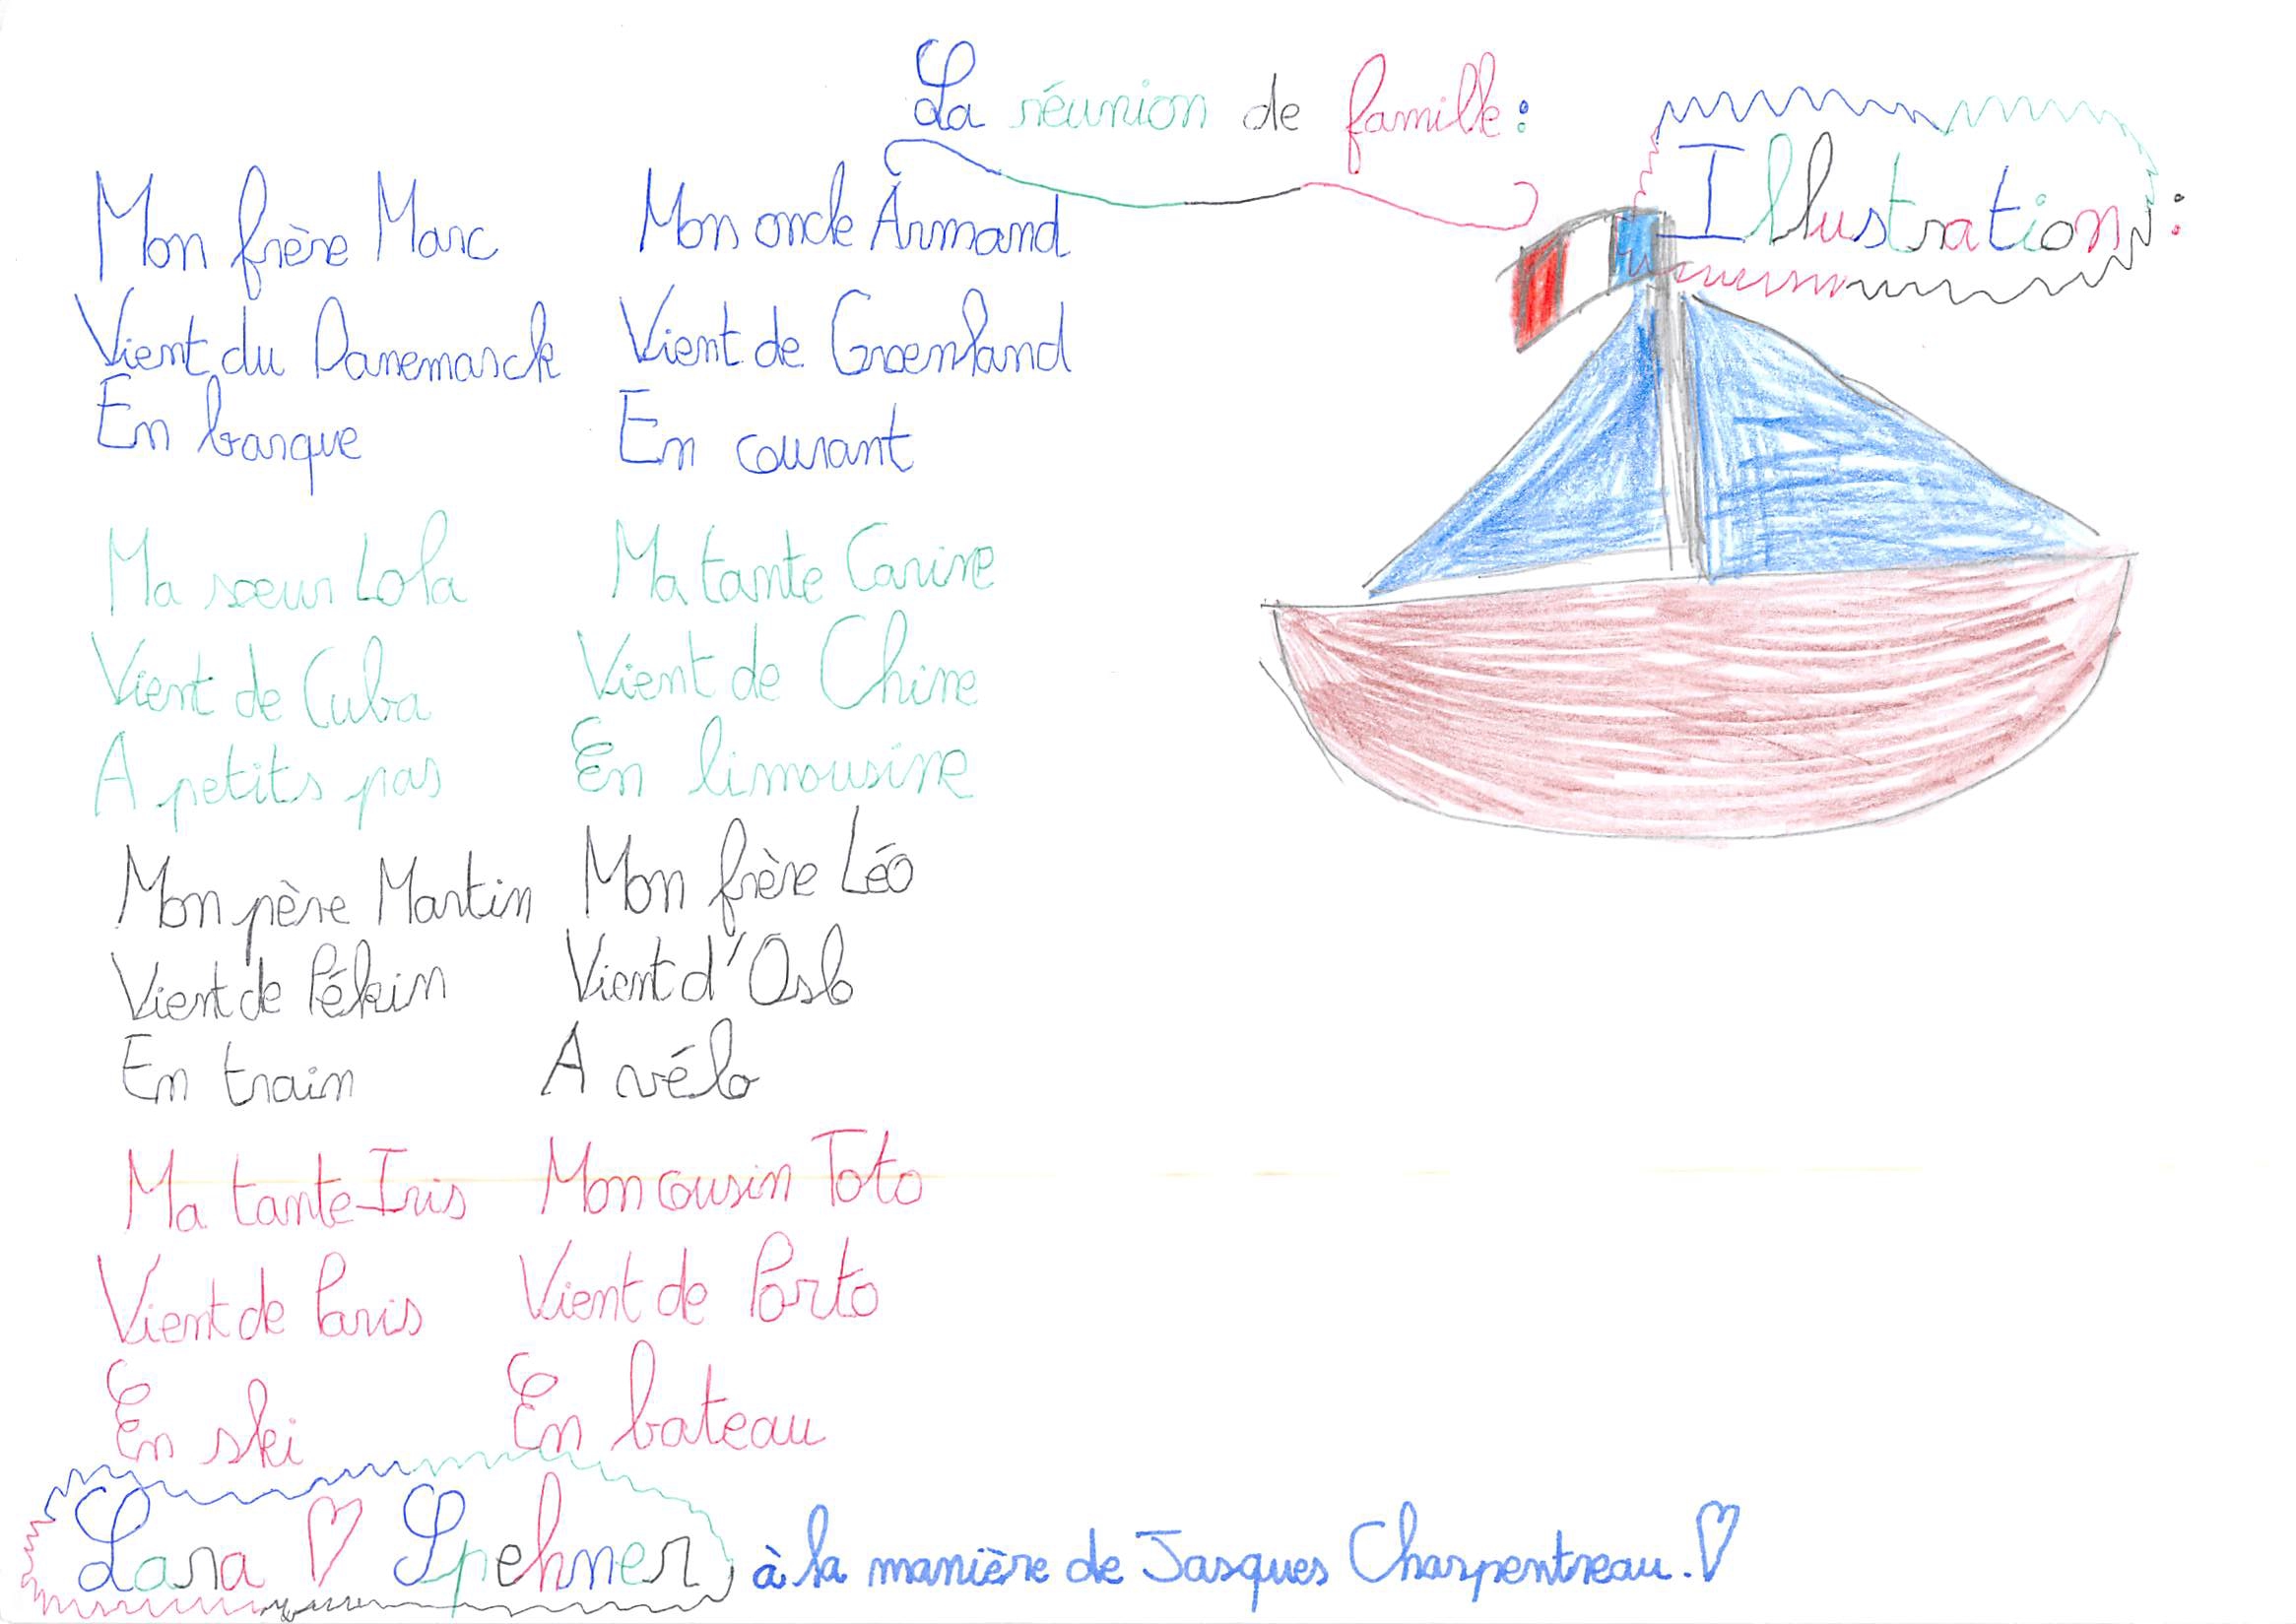 La réunion de famille :
Illustration :
Mon frère Marc
Vient du Danemarck
En barque
Ma sœur Lola
Vient de Cuba
A petits pas
Mon père Martin
Vient de Pékin
En train
Ma tante Iris
Vient de Paris
En ski
Mon oncle Armand
Vient de Groenland
En courant
Ma tante Carine
Vient de Chine
En limousine
Mon frère Léo
Vient d'Oslo
A vélo
Mon cousin Toto
Vient de Porto
En bateau
Lara ♡ Spehner, à la manière de Jasques Charpentreau. ♡